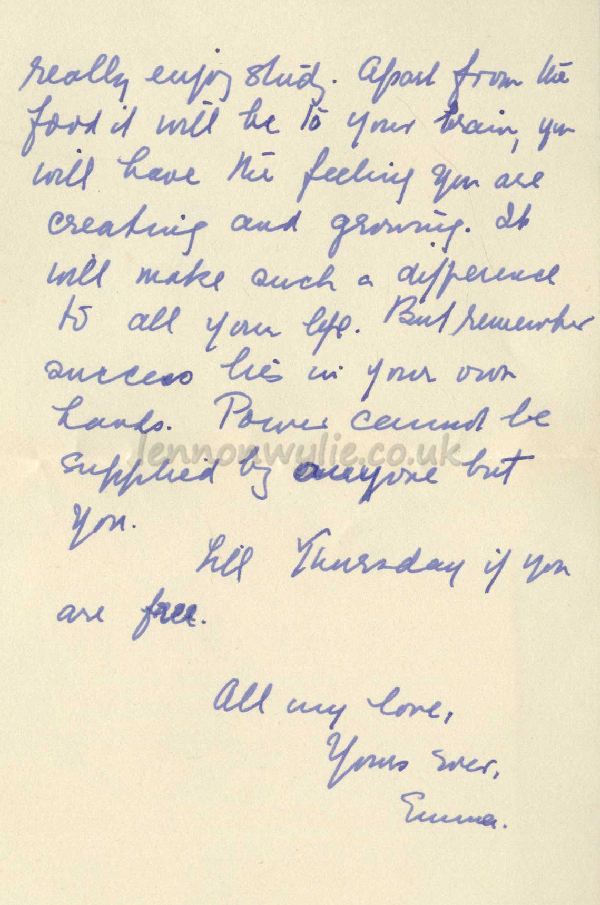 really enjoy study. Apart from the
food it will be to your brain, you
will have the feeling you are
creating and growing. It
will make such a difference
to all your life. But remember
success lies in your own
hands. Power cannot be
lennonwylie.co.uk
supplied by anyone but
you.
till Thursday if you
are free.
All my love,
Yours ever,
Emma.